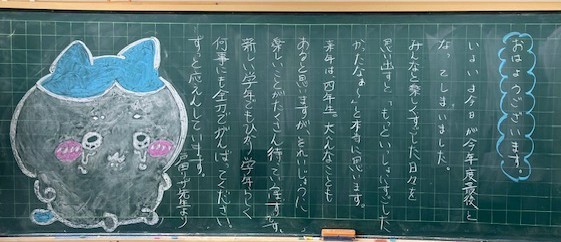 おはようございます。
いよいよ今日が今年度最後と
なってしまいました。
みんなと楽しくすごした日々を
思い出すと「もっといっしょにすごした
かったなぁ〜」と本当に思います。
来年は四年生。大へんなことも
あると思いますが、それいじょうに
楽しいことがたくさん待っています。
新しい学年でもひかり学年らしく
何事にも全力でがんばってください。
ずっと応えんしています。
先生より